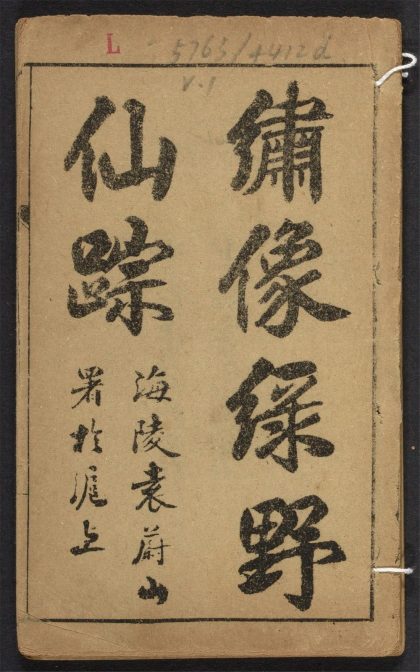 L 5765/4412d
v.1
繡像綠野
仙踪
海陵袁蔚山
署於滬上